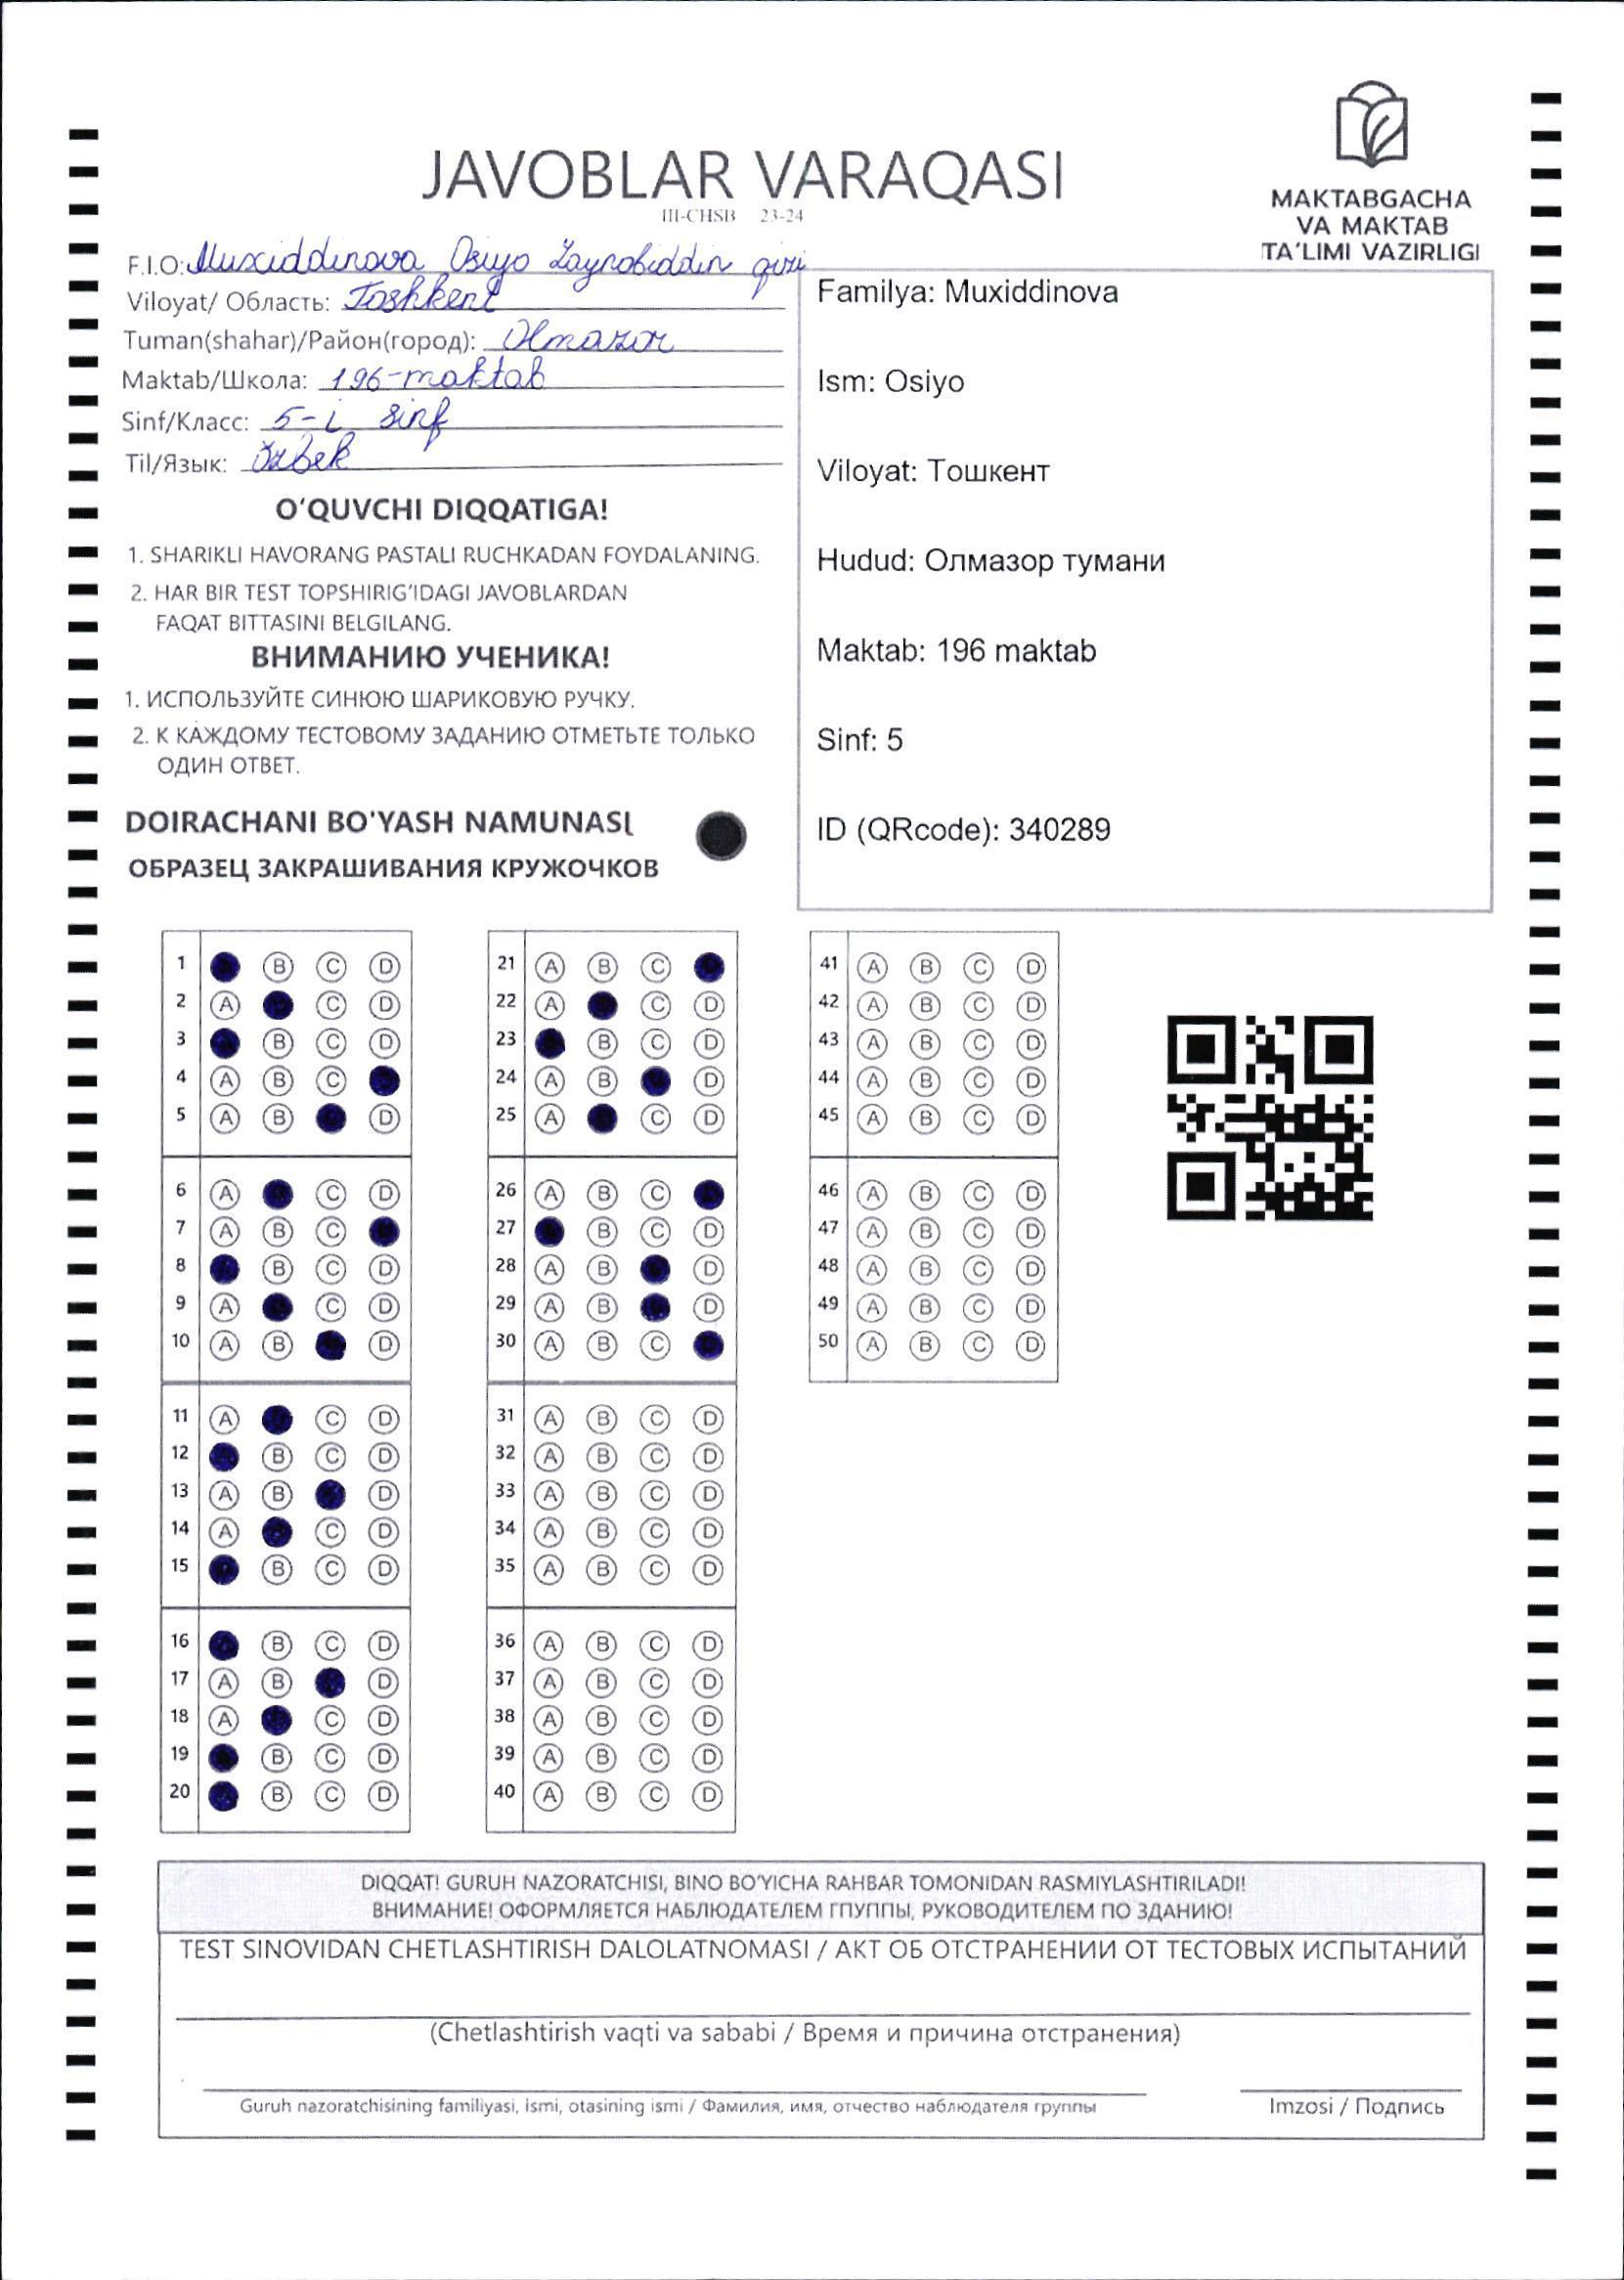 JAVOBLAR VARAQASI
III-CHSB 23-24
MAKTABGACHA
VA MAKTAB
TA'LIMI VAZIRLIGI
F.I.O: Muxiddinova Osiyo Zaynobiddin qizi
Viloyat/ Область: Toshkent
Tuman(shahar)/Район(город): Olmazor
Maktab/Школа: 196-maktab
Sinf/Класс: 5-i sinf
Til/Язык: Özbek
Familya: Muxiddinova
Ism: Osiyo
Viloyat: Тошкент
Hudud: Олмазор тумани
Maktab: 196 maktab
Sinf: 5
ID (QRcode): 340289
O'QUVCHI DIQQATIGA!
1. SHARIKLI HAVORANG PASTALI RUCHKADAN FOYDALANING.
2. HAR BIR TEST TOPSHIRIG'IDAGI JAVOBLARDAN
FAQAT BITTASINI BELGILANG.
ВНИМАНИЮ УЧЕНИКА!
1. ИСПОЛЬЗУЙТЕ СИНЮЮ ШАРИКОВУЮ РУЧКУ.
2. К КАЖДОМУ ТЕСТОВОМУ ЗАДАНИЮ ОТМЕТЬТЕ ТОЛЬКО
ОДИН ОТВЕТ.
DOIRACHANI BO'YASH NAMUNASI
ОБРАЗЕЦ ЗАКРАШИВАНИЯ КРУЖОЧКОВ
1 B C D
2 A C D
3 B C D
4 A B C
5 A B D
6 A C D
7 A B C
8 B C D
9 A C D
10 A B D
11 A C D
12 B C D
13 A B D
14 A C D
15 B C D
16 B C D
17 A B D
18 A C D
19 B C D
20 B C D
21 A B C
22 A C D
23 B C D
24 A B D
25 A C D
26 A B C
27 B C D
28 A B D
29 A B D
30 A B C
31 A B C D
32 A B C D
33 A B C D
34 A B C D
35 A B C D
36 A B C D
37 A B C D
38 A B C D
39 A B C D
40 A B C D
41 A B C D
42 A B C D
43 A B C D
44 A B C D
45 A B C D
46 A B C D
47 A B C D
48 A B C D
49 A B C D
50 A B C D
DIQQAT! GURUH NAZORATCHISI, BINO BO'YICHA RAHBAR TOMONIDAN RASMIYLASHTIRILADI!
ВНИМАНИЕ! ОФОРМЛЯЕТСЯ НАБЛЮДАТЕЛЕМ ГПУППЫ, РУКОВОДИТЕЛЕМ ПО ЗДАНИЮ!
TEST SINOVIDAN CHETLASHTIRISH DALOLATNOMASI / АКТ ОБ ОТСТРАНЕНИИ ОТ ТЕСТОВЫХ ИСПЫТАНИЙ
(Chetlashtirish vaqti va sababi / Время и причина отстранения)
Guruh nazoratchisining familiyasi, ismi, otasining ismi / Фамилия, имя, отчество наблюдателя группы
Imzosi / Подпись